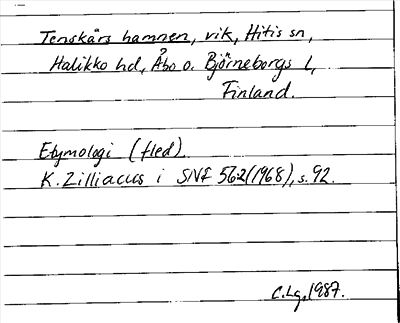 Tenskärs hamnen, vik, Hitis sn,
Halikko hd, Åbo o. Björneborgs l,
Finland.
Etymologi (fled).
K. Zilliacus i SNF 56:2(1968), s. 92.
C.Lg. 1987.